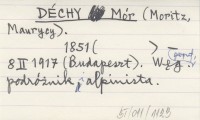 DÉCHY Mór (Moritz,
Maurycy).
1851 ( ) –
8 II 1917 (Budapeszt). Węg.
podróżnik alpinista.